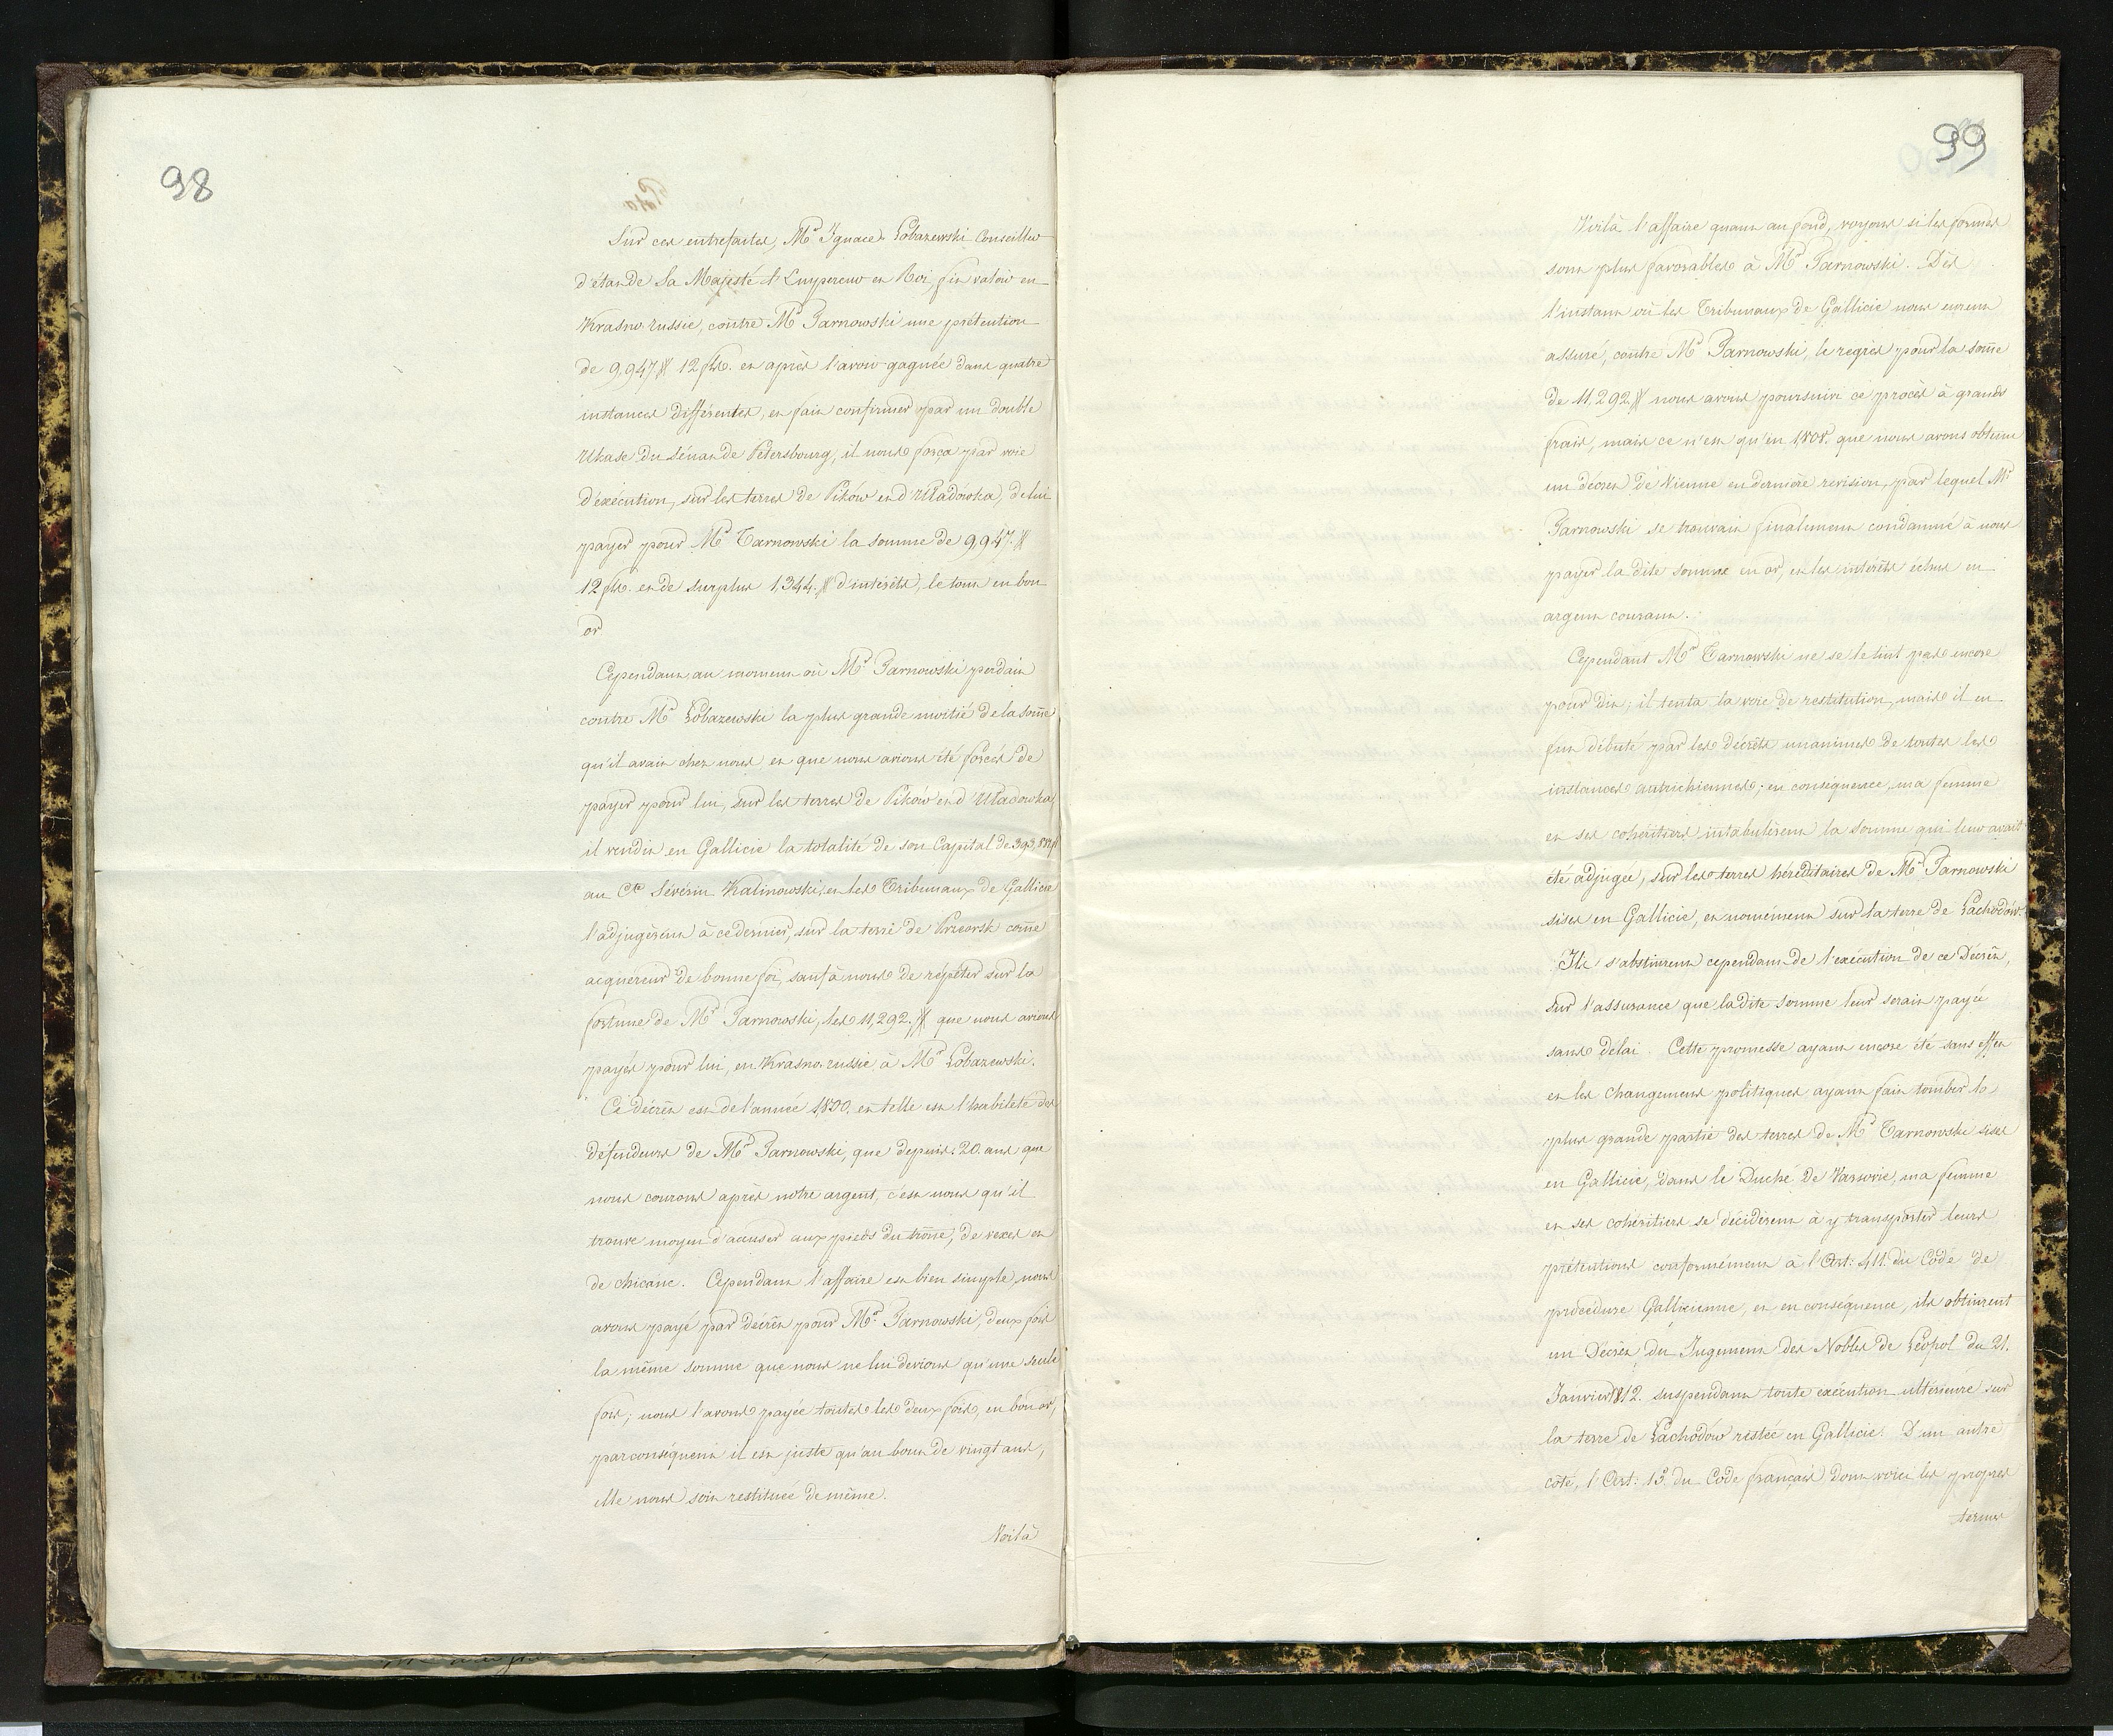 98
Sur ces entrefaites, Mr Ignace Łobazewski Conseiller
d'état de Sa Majesté l'Empereur et Roi, fit valoir en
Krasno-russie, contre Mr Tarnowski une prétention
de 9,947 # 12 fls. et après l'avoir gagnée dans quatre
instances différentes, et fait confirmer par un double
Ukase du Sénat de Pétersbourg, il nous força par voie
d'exécution, sur les terres de Pików et d'Uładówka, de lui
payer pour Mr Tarnowski la somme de 9,947. #
12 fls. et de surplus 1,344. # d'intérêts, le tout en bon
or
Cependant, au moment où Mr Tarnowski perdait
contre Mr Łobazewski la plus grande moitié de la som̄e
qu'il avait chez nous, et que nous avions été forcés de
payer pour lui, sur les terres de Pików et d'Uładowka,
il vendit en Gallicie la totalité de son Capital de
au Cte Sévérin Kalinowski, et les Tribunaux de Gallicie
l'adjugèrent à ce dernier, sur la terre de com̄e
acquereur de bonne foi, sauf à nous de répéter sur la
fortune de Mr Tarnowski, les 11,292. # que nous avions
payés pour lui, en Krasno-russie, à Mr Łobazewski.
Ce décrèt est de l'année 1800. et telle est l'habileté des
défendeurs de Mr Tarnowski, que depuis 20. ans que
nous courons après notre argent, c'est nous qu'il
trouve moyen d'accuser aux pieds du trône, de vexer et
de chicane. Cependant l'affaire est bien simple, nous
avons payé par décrèt pour Mr Tarnowski, deux fois
la même somme que nous ne lui devions qu'une seule
fois; nous l'avons payée toutes les deux fois, en bon or,
parconséquent il est juste qu'au bout de vingt ans,
elle nous soit restituée de même.
Voilà
99
Voilà l'affaire quant au fond, voyons si les formes
sont plus favorables à Mr Tarnowski. Dès
l'instant où les Tribunaux de Gallicie nous eurent
assuré, contre Mr Tarnowski, le regrès pour la som̄e
de 11,292 # nous avons poursuivi ce procès à grands
frais, mais ce n'est qu'en 1808. que nous avons obtenu
un décret de Vienne en dernière revision, par lequel Mr
Tarnowski se trouvait finalement condamné à nous
payer la dite somme en or, et les intérêts échus en
argent courant.
Cependant Mr Tarnowski ne se le tint pas encore
pour dit; il tenta la voie de restitution, mais il en
fut débuté par les décrèts unanimes de toutes les
instances autrichiennes; en conséquence, ma femme
et ses cohéritiers intabulèrent la somme qui leur avait
été adjugée, sur les terres héréditaires de Mr Tarnowski
sises en Gallicie, et nomément sur la terre de Łachodów.
Ils s'abstinrent cependant de l'exécution de ce Décrèt,
sur l'assurance que la dite somme leur serait payée
sans délai. Cette promesse ayant encore été sans effet
et les changemens politiques ayant fait tomber la
plus grande partie des terres de Mr Tarnowski sises
en Gallicie, dans le Duché de Varsovie, ma femme
et ses cohéritiers se décidèrent à y transporter leurs
prétentions conformément à l'Art: 411. du Code de
procedure Gallicienne, et en conséquence, ils obtinrent
un Décrèt du Jugement des Nobles de Léopol du 21.
Janvier 1812. suspendant toute exécution ultérieure sur
la terre de Łachodów restée en Gallicie. D'un autre
côté, l'Art: 15. du Code français dont voici les propres
termes